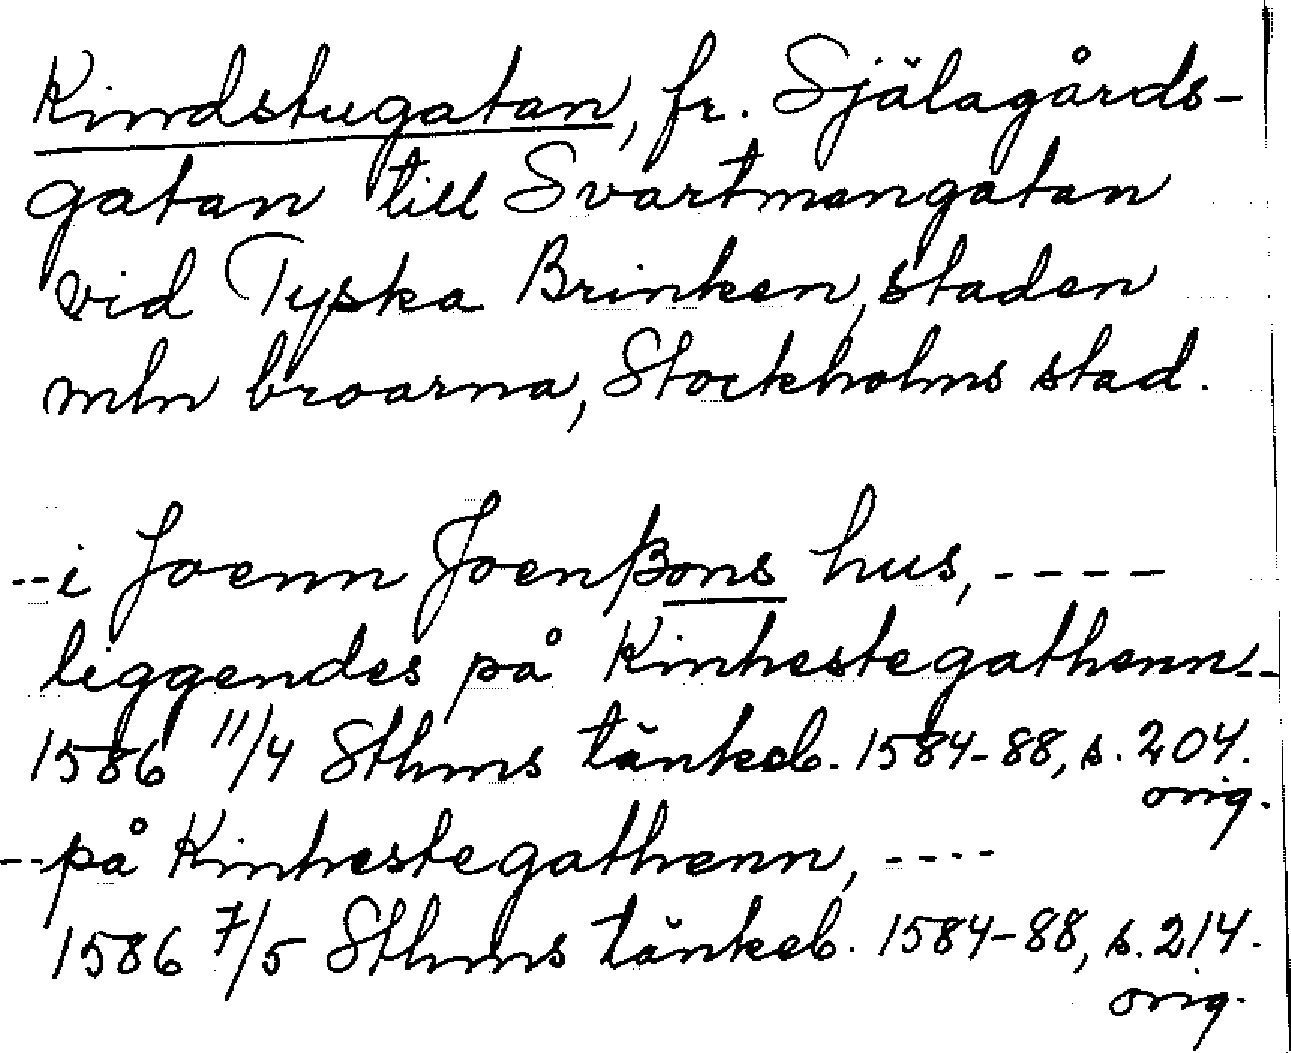 Kindstugatan, fr. Själagårds-
gatan till Svartmangatan
vid Tyska Brinken, staden
mln broarna, Stockholms stad.
--i Joenn Joenßons hus, ----
liggendes på Kinhestegathenn--
1586 11/4 Sthms tänkeb. 1584-88, s. 204.
orig.
--på Kinhestegathenn, ----
1586 7/5 Sthms tänkeb. 1584-88, s. 214.
orig.